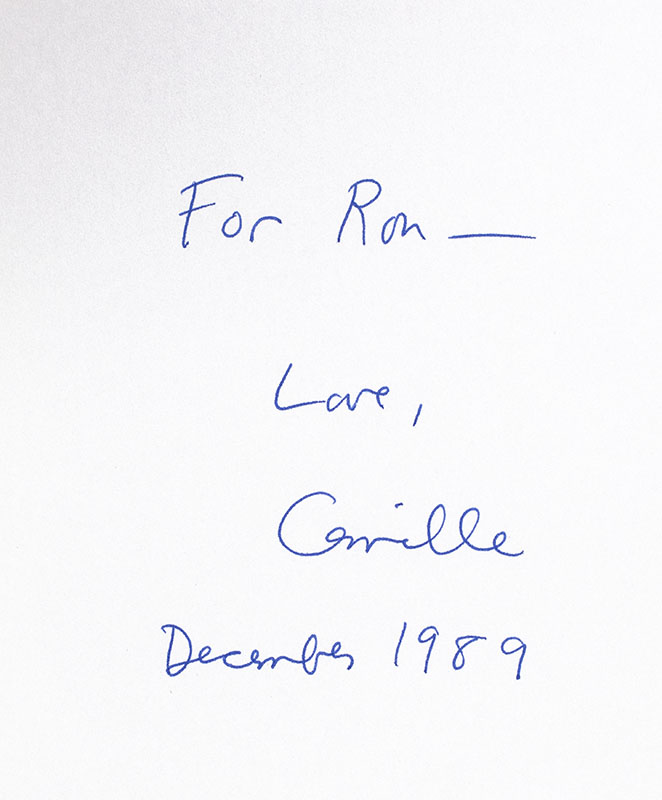 For Ron —
Love,
Camille
December 1989